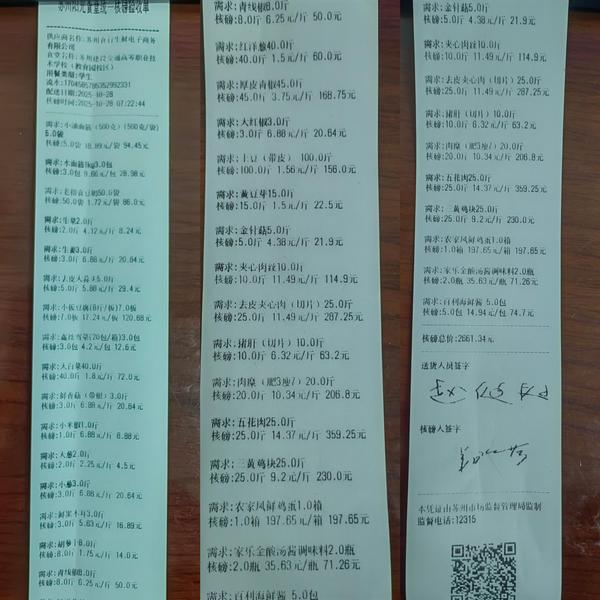 苏州阳光食堂统一核磅验收单
供应商名称:苏州食行生鲜电子商务
有限公司
食堂名称:苏州建设交通高等职业技
术学校(教育园校区)
用餐类型:学生
流水:1704585785352992331
配送日期:2025-10-28
核磅时间:2025-10-28 07:22:44
需求:小油面筋(500克)(500克/袋)
5.0袋
核磅:5.0袋 18.89元/袋 94.45元
需求:水面筋1kg3.0包
核磅:3.0包 9.66元/包 28.98元
50.0袋
核磅:50.0袋 1.72元/袋 86.0元
需求:生菜2.0斤
核磅:2.0斤 4.12元/斤 8.24元
需求:生姜3.0斤
核磅:3.0斤 6.88元/斤 20.64元
需求:去皮大蒜头5.0斤
核磅:5.0斤 5.88元/斤 29.4元
需求:小板豆腐(8斤/板)7.0板
核磅:7.0板 17.24元/板 120.68元
需求:雪菜(20包/箱)3.0包
核磅:3.0包 4.2元/包 12.6元
需求:大白菜40.0斤
核磅:40.0斤 1.8元/斤 72.0元
需求:鲜香菇(带根)3.0斤
核磅:3.0斤 6.88元/斤 20.64元
需求:小米椒1.0斤
核磅:1.0斤 6.88元/斤 6.88元
需求:大葱2.0斤
核磅:2.0斤 2.25元/斤 4.5元
需求:小葱3.0斤
核磅:3.0斤 6.88元/斤 20.64元
需求:3.0斤
核磅:3.0斤 5.63元/斤 16.89元
需求:胡萝卜8.0斤
核磅:8.0斤 1.75元/斤 14.0元
需求:青线椒8.0斤
核磅:8.0斤 6.25元/斤 50.0元
需求:青线椒8.0斤
核磅:8.0斤 6.25元/斤 50.0元
需求:红洋葱40.0斤
核磅:40.0斤 1.5元/斤 60.0元
需求:厚皮青椒45.0斤
核磅:45.0斤 3.75元/斤 168.75元
需求:大红椒3.0斤
核磅:3.0斤 6.88元/斤 20.64元
需求:土豆(带皮) 100.0斤
核磅:100.0斤 1.56元/斤 156.0元
需求:黄豆芽15.0斤
核磅:15.0斤 1.5元/斤 22.5元
需求:金针菇5.0斤
核磅:5.0斤 4.38元/斤 21.9元
需求:夹心肉丝10.0斤
核磅:10.0斤 11.49元/斤 114.9元
需求:去皮夹心肉(切片)25.0斤
核磅:25.0斤 11.49元/斤 287.25元
需求:猪肝(切片)10.0斤
核磅:10.0斤 6.32元/斤 63.2元
需求:肉糜(肥3瘦7)20.0斤
核磅:20.0斤 10.34元/斤 206.8元
需求:五花肉25.0斤
核磅:25.0斤 14.37元/斤 359.25元
需求:三黄鸡块25.0斤
核磅:25.0斤 9.2元/斤 230.0元
需求:农家风鲜鸡蛋1.0箱
核磅:1.0箱 197.65元/箱 197.65元
需求:家乐金酸汤酱调味料2.0瓶
核磅:2.0瓶 35.63元/瓶 71.26元
需求:百利海鲜酱 5.0包
需求:金针菇5.0斤
核磅:5.0斤 4.38元/斤 21.9元
需求:夹心肉丝10.0斤
核磅:10.0斤 11.49元/斤 114.9元
需求:去皮夹心肉(切片)25.0斤
核磅:25.0斤 11.49元/斤 287.25元
需求:猪肝(切片)10.0斤
核磅:10.0斤 6.32元/斤 63.2元
需求:肉糜(肥3瘦7)20.0斤
核磅:20.0斤 10.34元/斤 206.8元
需求:五花肉25.0斤
核磅:25.0斤 14.37元/斤 359.25元
需求:三黄鸡块25.0斤
核磅:25.0斤 9.2元/斤 230.0元
需求:农家风鲜鸡蛋1.0箱
核磅:1.0箱 197.65元/箱 197.65元
需求:家乐金酸汤酱调味料2.0瓶
核磅:2.0瓶 35.63元/瓶 71.26元
需求:百利海鲜酱 5.0包
核磅:5.0包 14.94元/包 74.7元
核磅总价:2661.34元
送货人员签字
核磅人签字
本凭证由苏州市场监督管理局监制
监督电话:12315